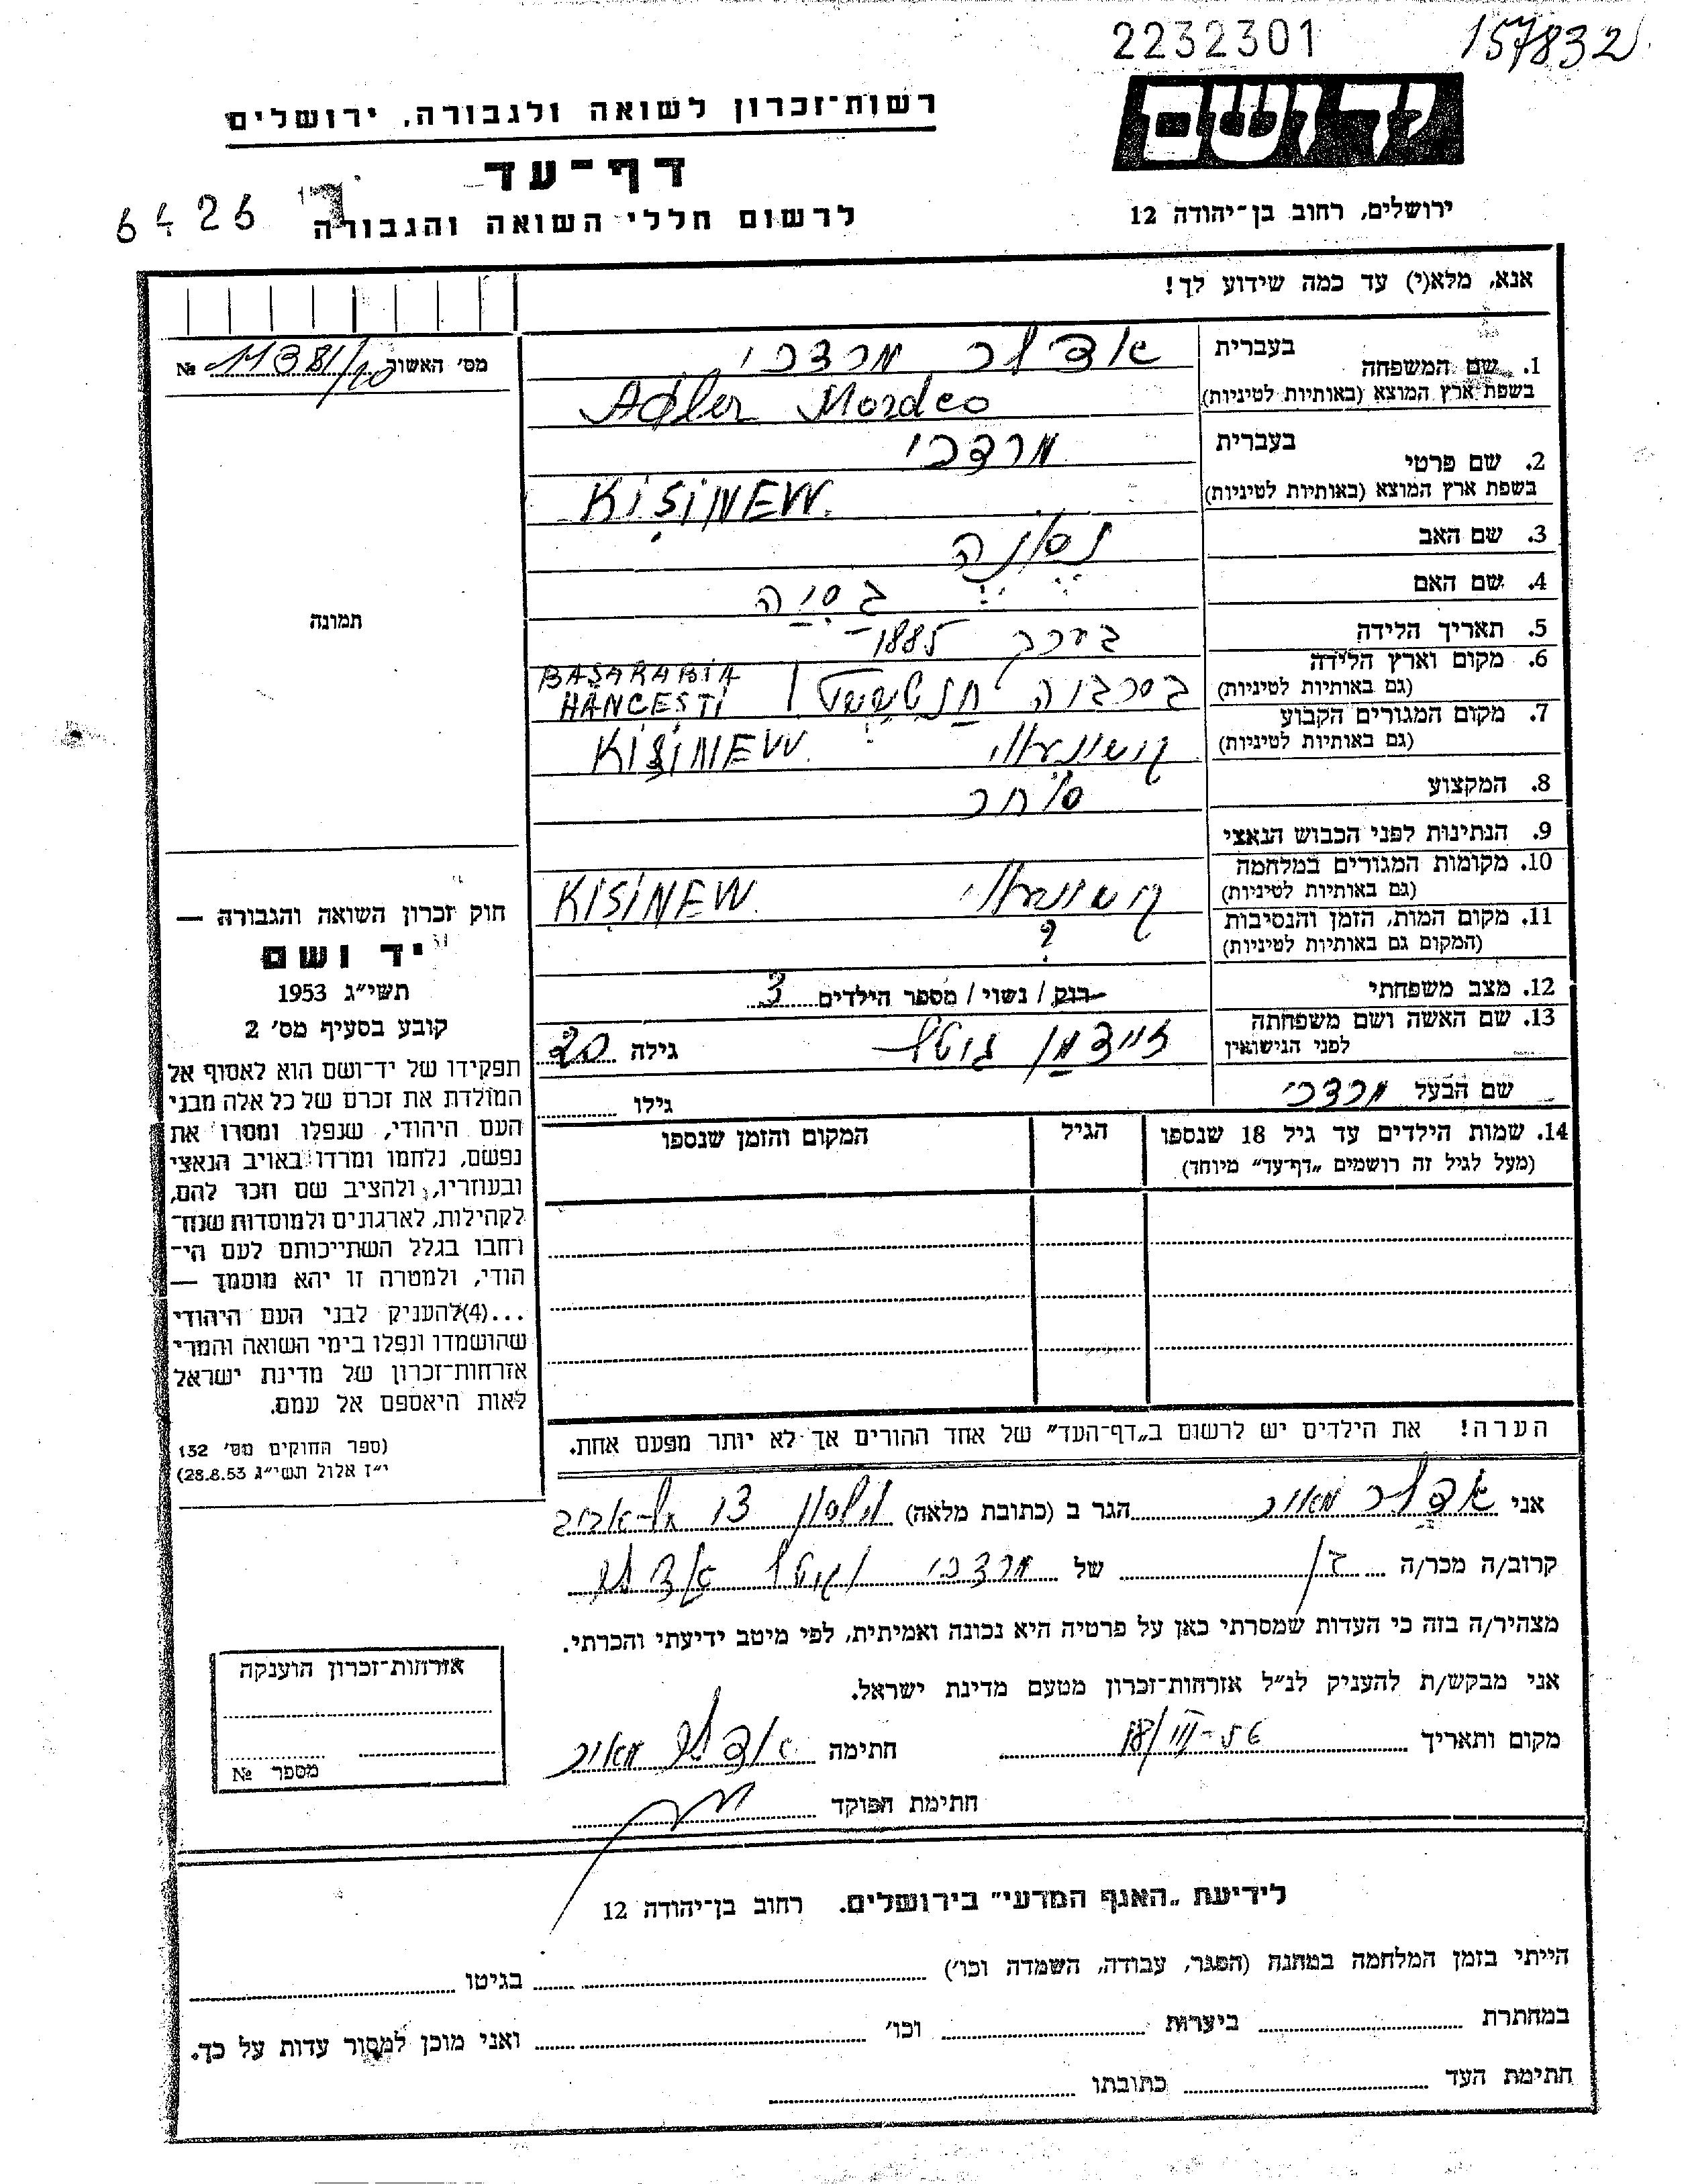 2232301
157832
יד ושם
רשות־זכרון לשואה ולגבורה, ירושלים
דף־עד
6426
לרשום חללי השואה והגבורה
ירושלים, רחוב בן־יהודה 12
אנא, מלא(י) עד כמה שידוע לך!
1. שם המשפחה
בעברית
אדלר מרדכי
בשפת ארץ המוצא (באותיות לטיניות)
Adler Mordco
מס׳ האשור 11381/10 №
2. שם פרטי
בעברית
מרדכי
בשפת ארץ המוצא (באותיות לטיניות)
KIȘINEW.
3. שם האב
4. שם האם
בסיה
5. תאריך הלידה
בערך 1885
6. מקום וארץ הלידה
(גם באותיות לטיניות)
בסרביה
BASARABIA
HÂNCEȘTI
7. מקום המגורים הקבוע
(גם באותיות לטיניות)
KIȘINEW.
8. המקצוע
סוחר
9. הנתינות לפני הכבוש הנאצי
10. מקומות המגורים במלחמה
(גם באותיות לטיניות)
KIȘINEW.
11. מקום המות, הזמן והנסיבות
(המקום גם באותיות לטיניות)
?
12. מצב משפחתי
רווק / נשוי / מספר הילדים 3
13. שם האשה ושם משפחתה
לפני הנישואין
זיידמן גיטל
גילה
שם הבעל מרדכי
גילו
14. שמות הילדים עד גיל 18 שנספו
(מעל לגיל זה רושמים „דף־עד״ מיוחד)
הגיל
המקום והזמן שנספו
תמונה
חוק זכרון השואה והגבורה —
יד ושם
תשי״ג 1953
קובע בסעיף מס׳ 2
תפקידו של יד־ושם הוא לאסוף אל
המולדת את זכרם של כל אלה מבני
העם היהודי, שנפלו ומסרו את
נפשם, נלחמו ומרדו באויב הנאצי
ובעוזריו, ולהציב שם וזכר להם,
לקהילות, לארגונים ולמוסדות שנח־
רחבו בגלל השתייכותם לעם הי־
הודי, ולמטרה זו יהא מוסמך —
...(4)להעניק לבני העם היהודי
שהושמדו ונפלו בימי השואה והמרי
אזרחות־זכרון של מדינת ישראל
לאות היאספם אל עמם.
(ספר החוקים מס׳ 132
י״ז אלול תשי״ג 28.8.53)
הערה! את הילדים יש לרשום ב„דף־העד״ של אחד ההורים אך לא יותר מפעם אחת.
אני אדלר מאיר הגר ב (כתובת מלאה) תל־אביב
קרוב/ה מכר/ה בן של מרדכי וגיטל אדלר
מצהיר/ה בזה כי העדות שמסרתי כאן על פרטיה היא נכונה ואמיתית, לפי מיטב ידיעתי והכרתי.
אני מבקש/ת להעניק לנ״ל אזרחות־זכרון מטעם מדינת ישראל.
מקום ותאריך 18/III-56 חתימה אדלר מאיר
חתימת הפוקד
אזרחות־זכרון הוענקה
מספר №
לידיעת „האגף המדעי״ בירושלים. רחוב בן־יהודה 12
הייתי בזמן המלחמה במחנה (הסגר, עבודה, השמדה וכו׳) בגיטו
במחתרת ביערות וכו׳ ואני מוכן למסור עדות על כך.
חתימת העד כתובתו